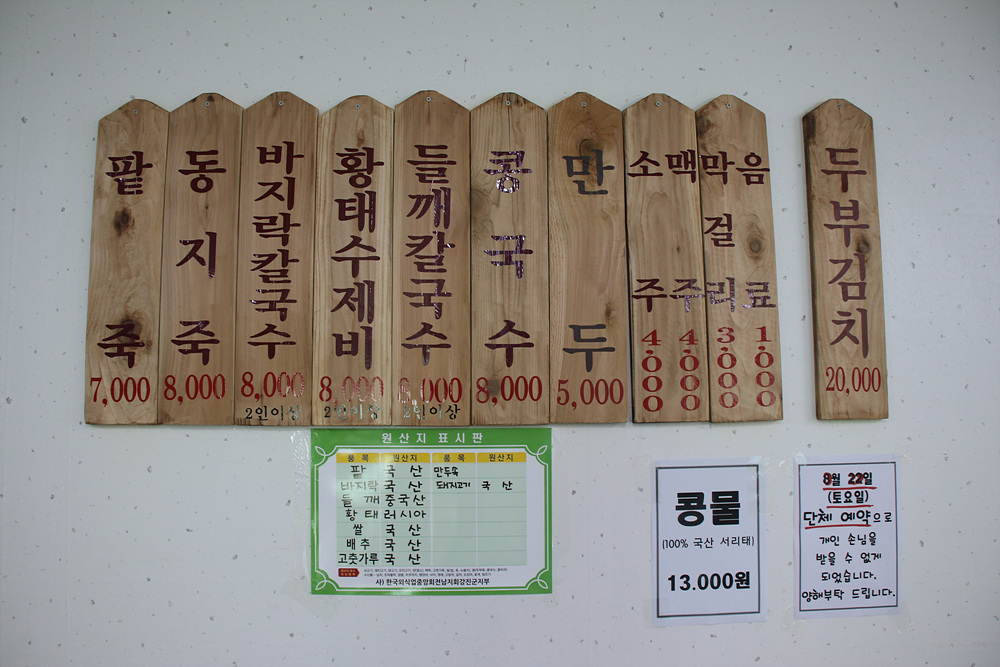 팥죽
7,000
동지죽
8,000
바지락칼국수
8,000
2인이상
황태수제비
8,000
2인이상
들깨칼국수
8,000
2인이상
콩국수
8,000
만두
5,000
소주
4,000
맥주
4,000
막걸리
3,000
음료
1,000
두부김치
20,000
원산지 표시판
품목 원산지 품목 원산지
팥 국산 만두속
바지락 국산 돼지고기 국산
들깨 중국산
황태 러시아
쌀 국산
배추 국산
고춧가루 국산
사) 한국외식업중앙회전남지회강진군지부
콩물
(100% 국산 서리태)
13.000원
8월 22일
(토요일)
단체 예약으로
개인 손님을
받을 수 없게
되었습니다.
양해부탁 드립니다.